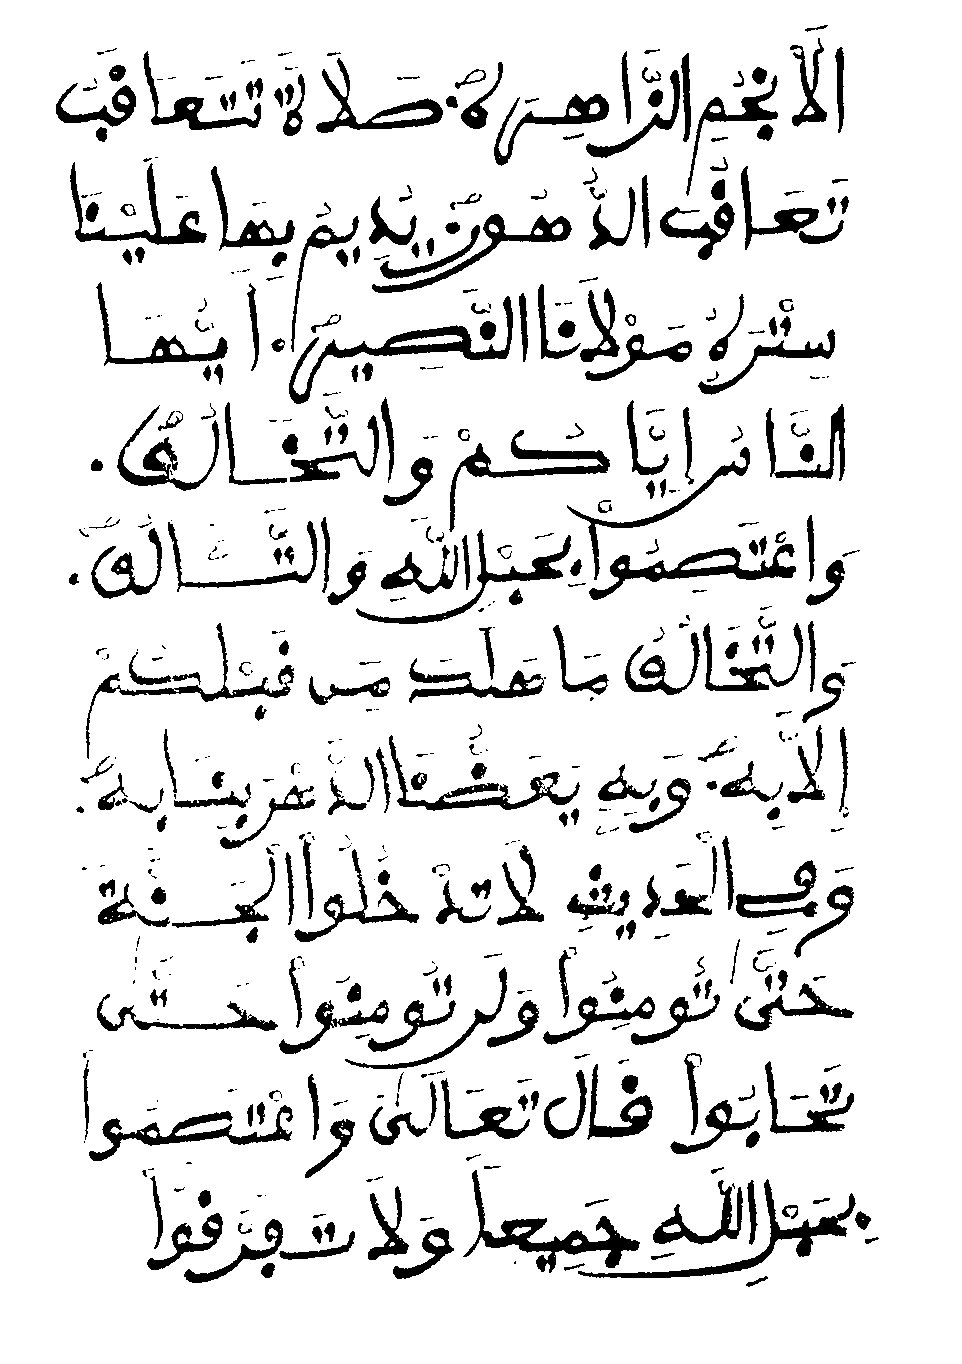 الَانْجُمِ الزَّاهِرَهْ صَلَاةً تَتَعَاقَبُ
تَعَاقُبَ الدُّهُورْ يُدِيمُ بِهَا عَلَيْنَا
سِتْرَهُ مَوْلَانَا النَّصِيرْ أَيُّهَا
النَّاسُ إِيَّاكُمْ وَالتَّخَالُفْ
وَاعْتَصِمُواْ بِحَبْلِ اللَّهِ وَالتَّـــالُفْ
وَالتَّخَالُفُ مَا هَلَكَ مَن قَبْلَكُمْ
إِلَّا بِهْ وَبِهِ يَعَضُّنَا الدَّهْرُ بِنَابِهْ
وَفِي الْحَدِيثِ لَا تَدْخُلُواْ الْجَنَّةَ
حَتَّى تُومِنُواْ وَلَن تُومِنُواْ حَتَّى
تَحَابُّواْ قَالَ تَعَالَى وَاعْتَصِمُواْ
بِحَبْلِ اللَّهِ جَمِيعاً وَلَا تَفَرَّقُواْ